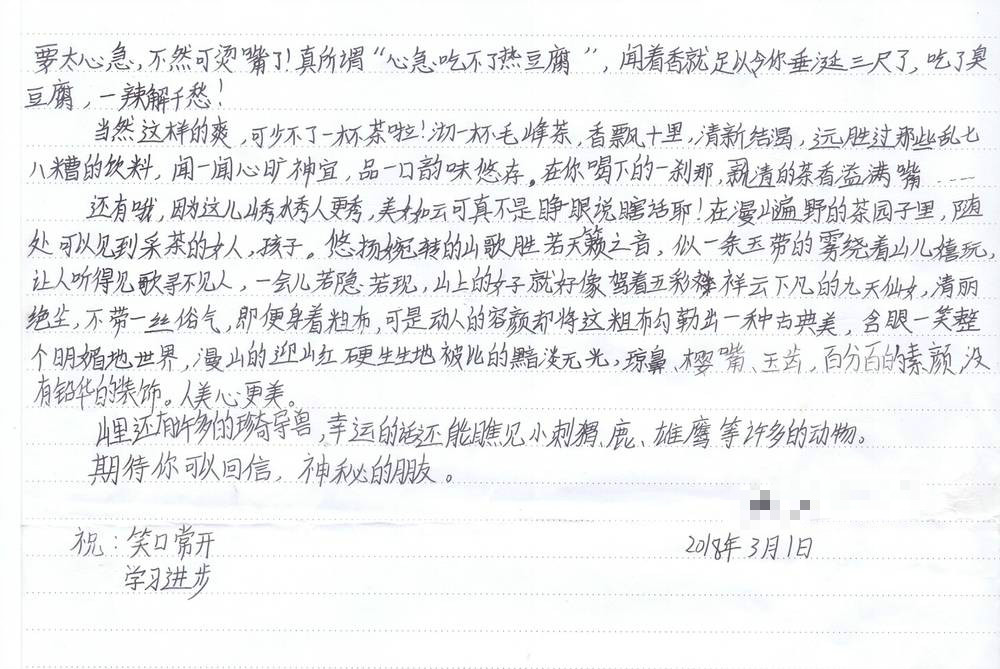 要太心急，不然可烫嘴了！真所谓“心急吃不了热豆腐”，闻着香就足以令你垂涎三尺了，吃了臭
豆腐，一辣解千愁！
当然这样的爽，可少不了一杯茶啦！沏一杯毛峰茶，香飘十里，清新结渴，远胜过那些乱七
八糟的饮料，闻一闻心旷神宜，品一口韵味悠存。在你喝下的一刹那，飘清的茶香溢满嘴……
还有哦，因为这儿山秀水秀人更秀，美女如云可真不是睁眼说瞎话耶！在漫山遍野的茶园子里，随
处可以见到采茶的女人，孩子。悠扬婉转的山歌胜若天籁之音，似一条玉带的雾绕着山儿嬉玩，
让人听得见歌寻不见人，一会儿若隐若现，山上的女子就好像驾着五彩祥云下凡的九天仙女，清丽
绝尘，不带一丝俗气，即便身着粗布，可是动人的容颜却将这粗布勾勒出一种古典美，含眼一笑整
个明媚地世界，漫山的迎山红硬生生地被比的黯淡无光，琼鼻、樱嘴、玉齿，百分百的素颜，没
有铅华的装饰。人美心更美。
山里还有许多的珍奇导兽，幸运的话还能瞧见小刺猬、鹿、雄鹰等许多的动物。
期待你可以回信，神秘的朋友。
祝：笑口常开
2018年3月1日
学习进步